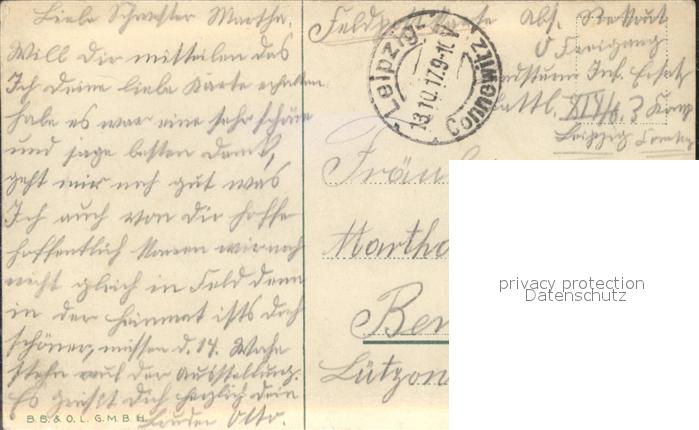 Liebe Schwester Martha.
Will Dir mitteilen das
Ich Deine liebe Karte erhalten
habe es war eine sehr schöne
und sage besten Dank,
geht mir noch gut was
Ich auch von Dir hoffe
hoffentlich kommen wir noch
nicht gleich in Feld denn
in der Heimat ists doch
schöner, müssen d. 14. Wache
stehn auf der Ausstellung.
Es grüßt Dich herzlich Dein
Bruder Otto.
B.B. & O. L. G.M.B.H.
Feldpostkarte Abs. Rekrut
O Freigang
Landsturm Inf. Ersatz
Battl. 3 Komp
Leipzig
Leipzig-Connewitz
13.10.17.9-10V
Fräul
Martha
Ber
Lützow
privacy protection
Datenschutz